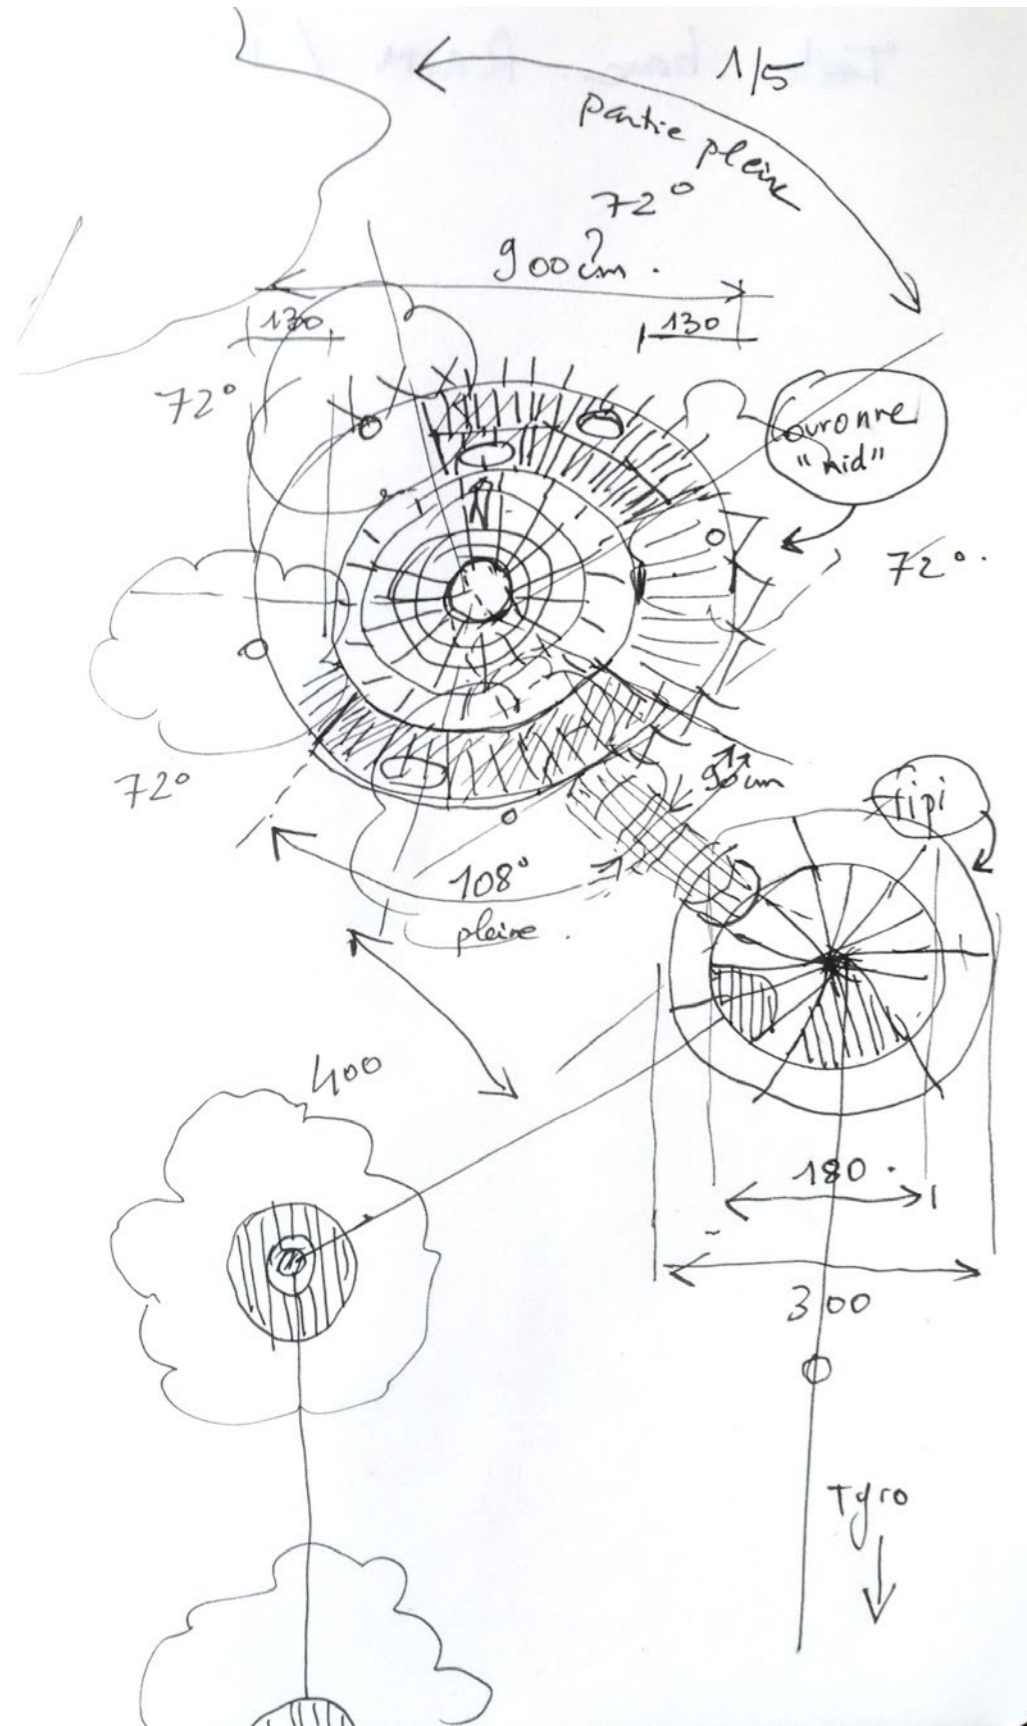 1/5
partie pleine
72°
900 cm.
?
130
130
72°
Couronne
"nid"
72°.
72°
90 cm
tipi
108°
pleine.
400
180.
300
Tyro